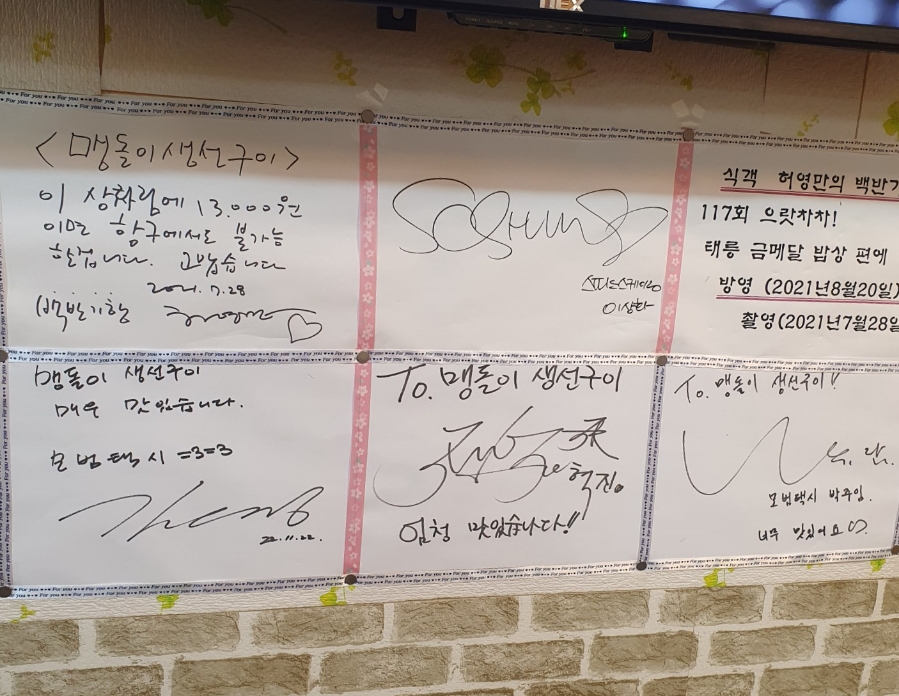 <맹돌이생선구이>
이 상차림에 13.000원
이면 항구에서도 불가능
한겁니다. 고맙습니다
2021.7.28
(백반기행
SPEED
스피드스케이팅
이상화
식객 허영만의 백반기
117회 으랏차차!
태릉 금메달 밥상 편에
방영 (2021년8월20일)
촬영(2021년7월28일
맹돌이 생선구이
매우 맛있습니다.
모범택시 =3=3
22.11.22.
To. 맹돌이 생선구이
혁진.
엄청 맛있습니다!!
To. 맹돌이 생선구이!!
모범택시 박주임.
너무 맛있어요
For you